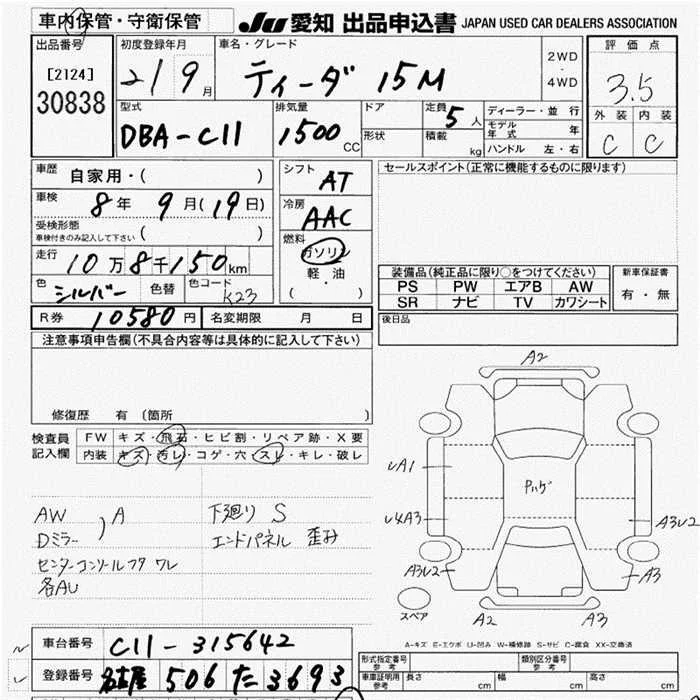 車内保管・守衛保管
JU 愛知 出品申込書 JAPAN USED CAR DEALERS ASSOCIATION
出品番号
[2124]
30838
初度登録年月
21 9月
車名・グレード
ティーダ 15M
2WD
・
4WD
評価点
3.5
外装 内装
C C
型式
DBA-C11
排気量
1500 CC
ドア
形状
定員 5人
積載 kg
ディーラー・並行
モデル年式 年
ハンドル 左・右
車歴 自家用・( )
車検 8年 9月(19日)
受検形態
車検付きのみ記入して下さい ( )
走行 10万8千150km
色 シルバー 色替 色コード K23
シフト AT
冷房 AAC
燃料
ガソリン
軽・油
( )
セールスポイント(正常に機能するものに限ります)
装備品(純正品に限り○をつけてください)
PS PW エアB AW
SR ナビ TV カワシート
新車保証書
有・無
R券 10580円 名変期限 月 日
後日品
注意事項申告欄(不具合内容等は具体的に記入して下さい)
修復歴 有 〔箇所 〕
検査員
記入欄
FW キズ・飛石・ヒビ割・リペア跡・X要
内装 キズ・汚レ・コゲ・穴・スレ・キレ・破レ
AW
Dミラー ) A
センターコンソールフタ ワレ
各AU
下廻り S
エンドパネル 歪み
A2
A1
A3
A3U2
A3U2
A3
A2
A3
スペア
A-キズ E-エクボ U-凹み W-補修跡 S-サビ C-腐食 XX-交換済
車台番号 C11-315642
登録番号 名古屋 506 た 3693
形式指定番号
参考
類別区分番号
参考
車庫証明用
参考
長さ cm 幅 cm 高さ cm